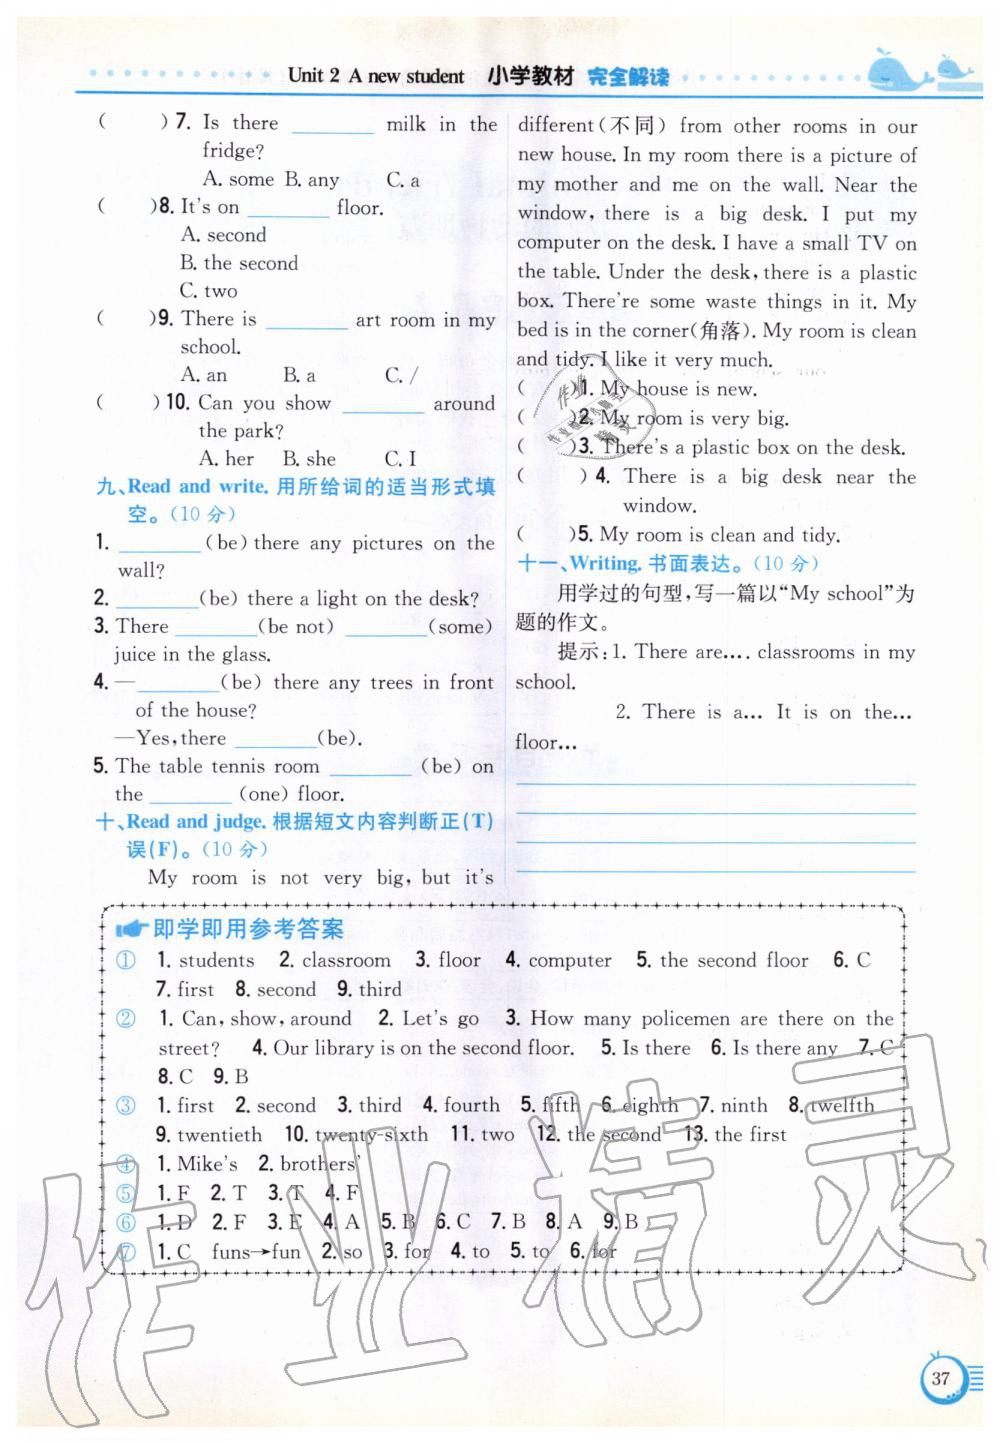 Unit 2 A new student 小学教材 完全解读
( )7. Is there ________ milk in the
fridge?
A. some B. any C. a
( )8. It's on ________ floor.
A. second
B. the second
C. two
( )9. There is ________ art room in my
school.
A. an B. a C. /
( )10. Can you show ________ around
the park?
A. her B. she C. I
九、Read and write. 用所给词的适当形式填
空。(10 分)
1. ________ (be) there any pictures on the
wall?
2. ________ (be) there a light on the desk?
3. There ________ (be not) ________ (some)
juice in the glass.
4. —________ (be) there any trees in front
of the house?
—Yes, there ________ (be).
5. The table tennis room ________ (be) on
the ________ (one) floor.
十、Read and judge. 根据短文内容判断正(T)
误(F)。(10 分)
My room is not very big, but it's
different(不同) from other rooms in our
new house. In my room there is a picture of
my mother and me on the wall. Near the
window, there is a big desk. I put my
computer on the desk. I have a small TV on
the table. Under the desk, there is a plastic
box. There're some waste things in it. My
bed is in the corner(角落). My room is clean
and tidy. I like it very much.
( )1. My house is new.
( )2. My room is very big.
( )3. There's a plastic box on the desk.
( )4. There is a big desk near the
window.
( )5. My room is clean and tidy.
十一、Writing. 书面表达。(10 分)
用学过的句型,写一篇以“My school”为
题的作文。
提示:1. There are.... classrooms in my
school.
2. There is a... It is on the...
floor...
即学即用参考答案
① 1. students 2. classroom 3. floor 4. computer 5. the second floor 6. C
7. first 8. second 9. third
② 1. Can, show, around 2. Let's go 3. How many policemen are there on the
street? 4. Our library is on the second floor. 5. Is there 6. Is there any 7. C
8. C 9. B
③ 1. first 2. second 3. third 4. fourth 5. fifth 6. eighth 7. ninth 8. twelfth
9. twentieth 10. twenty-sixth 11. two 12. the second 13. the first
④ 1. Mike's 2. brothers'
⑤ 1. F 2. T 3. T 4. F
⑥ 1. D 2. F 3. E 4. A 5. B 6. C 7. B 8. A 9. B
⑦ 1. C funs→fun 2. so 3. for 4. to 5. to 6. for
作业精灵
37